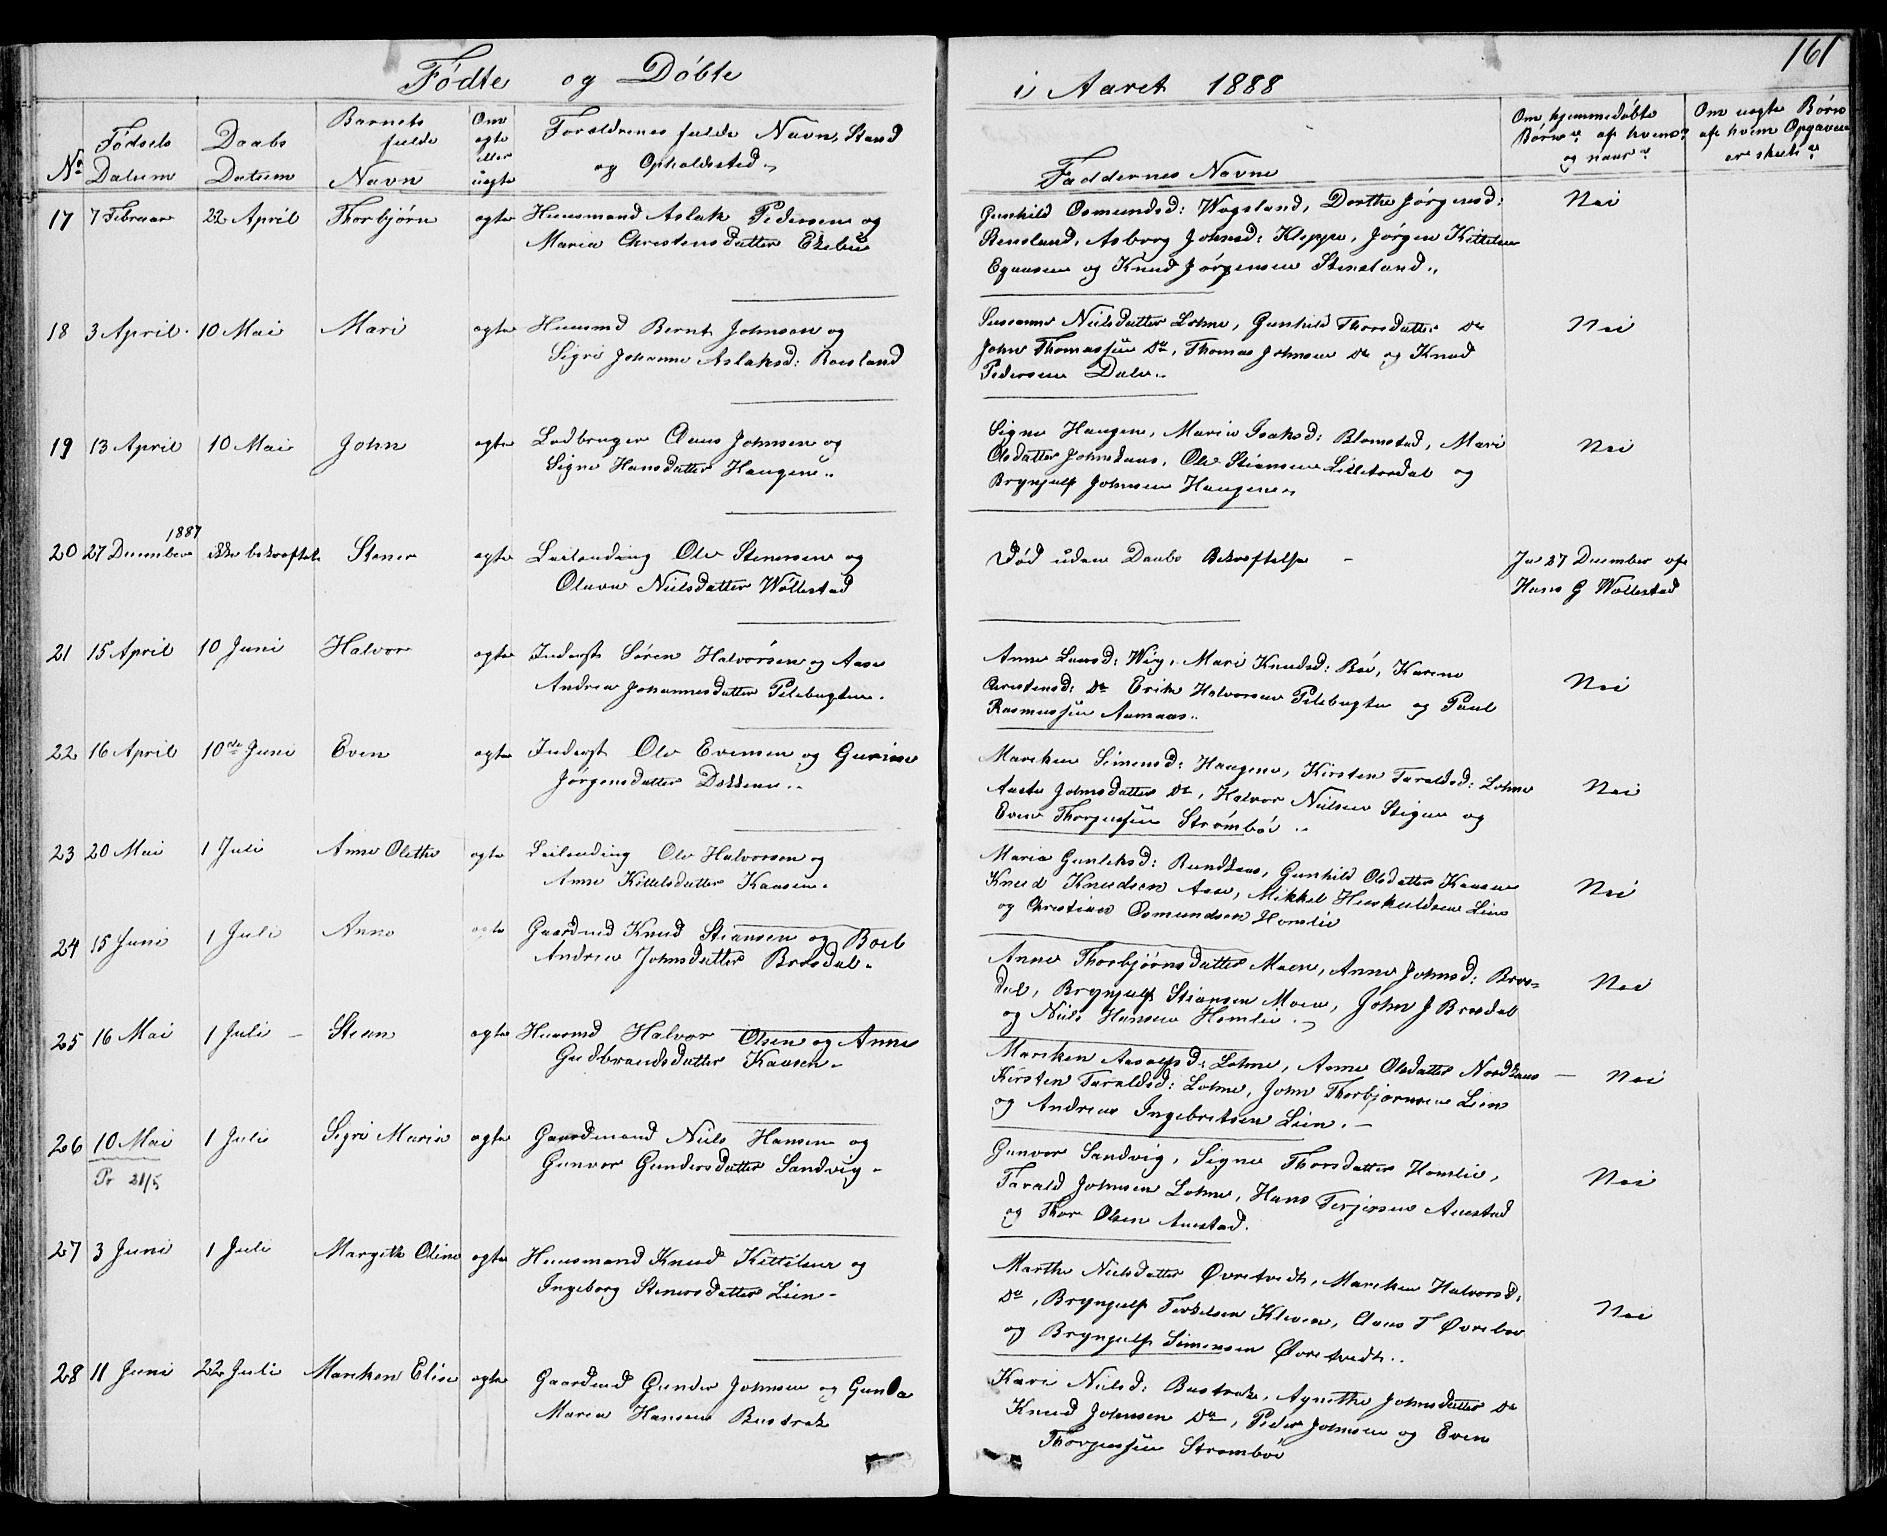 161
Fødte og Døbte i Aaret 1888
No Fødsels Datum Daabs Datum Barnets fulde Navn Om ægte eller uægte Forældrenes fulde Navn, Stand og Opholdssted Faddernes Navne Om hjemmedøbte Børn af hvem og naar Om uægte Børn af hvem Opgaven er skeet
17 7 Februar 22 April Thorbjørn ægte Huusmand Aslak Pedersen og
Maria Christensdatter Ekelie
Gunhild Osmundsd: Wogsland, Dorthe Jørgensd: Nei
Stensland, Asborg Johnsd: Kleppe, Jørgen Kittelsen
og Knud Jørgensen Stensland
18 3 April 10 Mai Mari ægte Huusmd Bernt Johnsen og
Sigri Johanne Aslaksd: Roesland
Susanne Nielsdatter Lohne, Gunhild Thorsdatter Do Nei
John Thomassen Do, Thomas Johnsen Do og Knud
Pedersen Dale
19 13 April 10 Mai John ægte Claus Johnsen og
Signe Hansdatter Haugene
Signe Haugene, Marie Isaksd: Blomstad, Mari Nei
Olsdatter Johnskaas, Ole Stiansen og
Brynjulf Johnsen Haugene
20 27 December 1887 ikke bekræftet Stener ægte Leilending Ole Stenersen og
Olava Nielsdatter Wollestad
Død uden Daabs Bekræftelse – Ja 27 December af
Hans G Wollestad
21 15 April 10 Juni Halvor ægte Inderst Søren Halvorsen og Aase
Andrea Johannesdatter Pilebugten
Anne Larsd: Wig, Mari Knudsd: Bøe, Karine Nei
Christensd: Do Erik Halvorsen Pilebugten og Paul
Rasmussen Aamaas
22 16 April 10de Juni Even ægte Inderst Ole Evensen og Gurine
Jørgensdatter Dokken
Mareken Simensd: Haugene, Kirsten Taraldsd: Lohne Nei
Aaste Johnsdatter Do, Halvor Nielsen Stigen og
Even Thorgussen Strømbøe
23 20 Mai 1 Juli Anne Olethe ægte Leilending Ole Halvorsen og
Anne Kittelsdatter Kaasen
Maria Gunleksd: Gunhild Olsdatter Kaasen Nei
Knud Knudsen Aase, Mikkel Huskuldsen Lien
og Christian Osmundsen Homlie
24 15 Juni 1 Juli Anne ægte Gaardmd Knud Stiansen og Boel
Andrea Johnsdatter Brædal
Anne Thorbjørnsdatter Moen, Anne Johnsd: Bræ- Nei
dal, Brynjulf Stiansen Moen, John J Brædal
og Niels Hansen Homlie
25 16 Mai 1 Juli – Stean ægte Huusmd Halvor Olsen og Anne
Gudbrandsdatter Kaasen
Mareken Lohne, Anne Olsdatter – Nei
Kirsten Taraldsd: Lohne, John Thorbjørnsen Lien
og Andreas Ingebretsen Lien
26 10 Mai 1 Juli Sigri Marie ægte Gaardmand Niels Hansen og
Pr 21/5 Gunvor Gundersdatter Sandvig
Gunvor Sandvig, Signe Thorsdatter Homlie, Nei
Tarald Johnsen Lohne, Hans Terjesen Auestad
og Thor Olsen Auestad.
27 3 Juni 1 Juli Margith Oline ægte Huusmand Knud Kittilsen og
Ingeborg Stenersdatter Lien
Marthe Nielsdatter Øvretvedt, Mareken Halvorsd: Nei
Do, Brynjulf Terkelsen Kleven, Claus T Øvrebøe
og Brynjulf Simensen Øvretvedt
28 11 Juni 22 Juli Mareken Elise ægte Gaardmd Gunder Johnsen og Gunda
Maria Hansen Bustrak
Kari Nielsd: Bustrak, Agnethe Johnsdatter Do
Knud Johnsen Do, Peder Johnsen og Even
Thorgussen Strømbøe